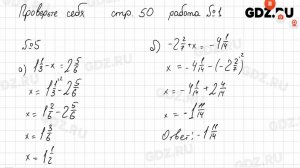 GDZ.RU
Проверьте себя стр. 50 работа №1
№5
а) 1 1/3 - x = 2 5/6
x = 1 1/3 - 2 5/6
x = 1 2/6 - 2 5/6
x = 1 3/6
x = 1 1/2
б) -2 2/7 + x = -4 1/14
x = -4 1/14 - (-2 2/7)
x = -4 1/14 + 2 4/14
x = -1 11/14
Ответ: -1 11/14
GDZ.RU